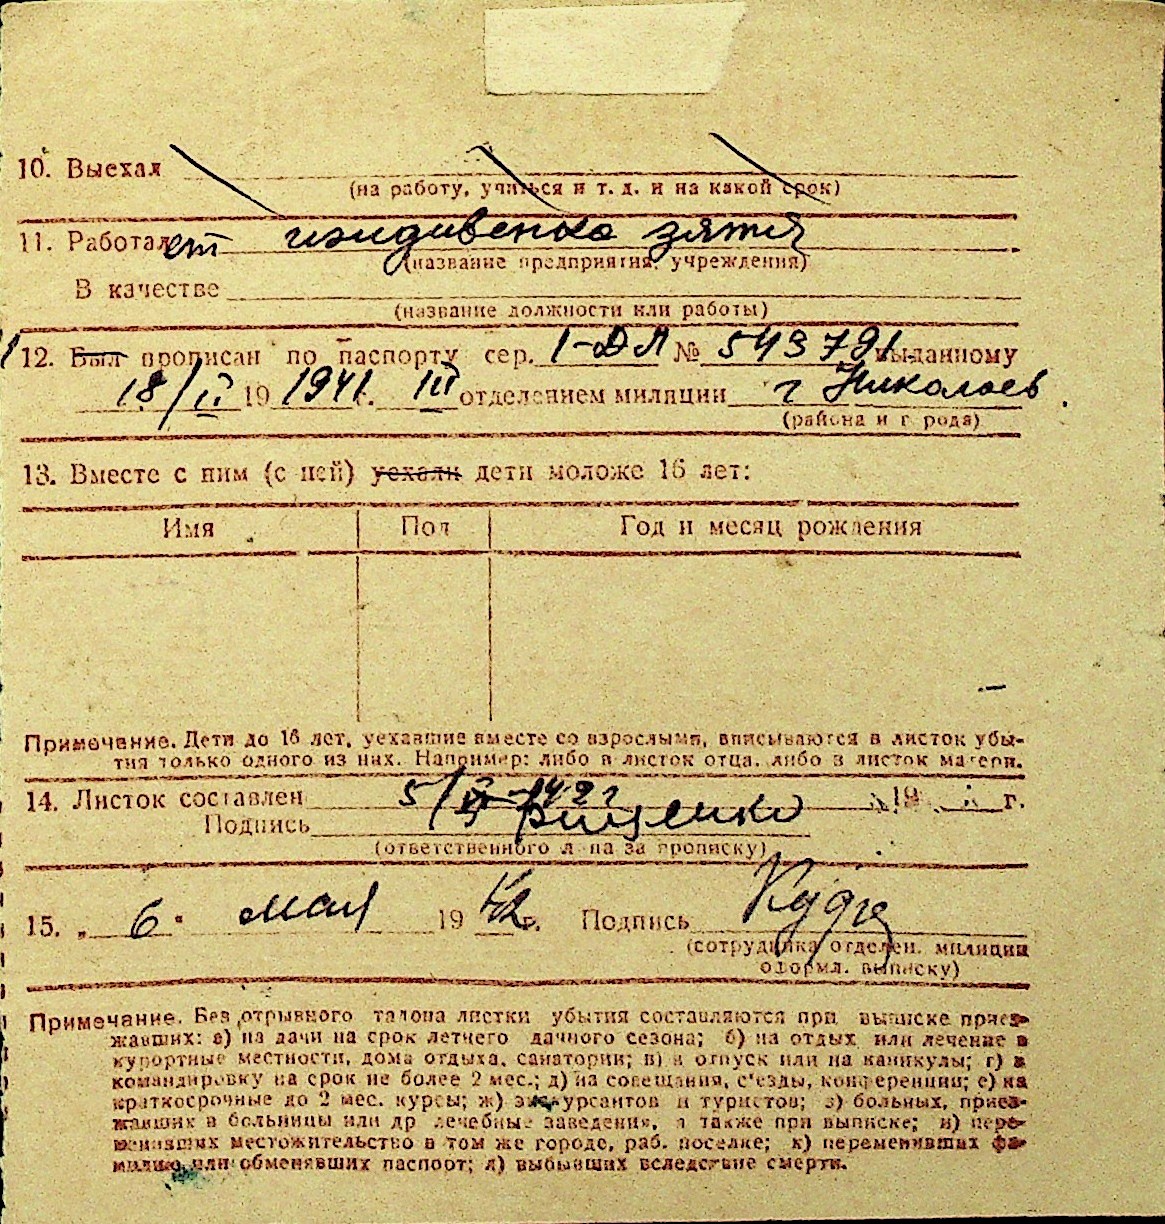 10. Выехал
(на работу, учиться и т. д. и на какой срок)
11. Работает иждивенка зятя
(название предприятия, учреждения)
В качестве
(название должности или работы)
12. Был прописан по паспорту сер. I-ДЛ № 543791 выданному
18/II 19 1941 г. III отделением милиции г Николаев
(района и города)
13. Вместе с ним (с ней) уехали дети моложе 16 лет:
Имя Пол Год и месяц рождения
Примечание. Дети до 16 лет, уехавшие вместе со взрослыми, вписываются в листок убы-
тия только одного из них. Например: либо в листок отца, либо в листок матери.
14. Листок составлен 5/V-42 г 19 г.
Подпись
(ответственного лица за прописку)
15. „ 6 " мая 19 42 г. Подпись
(сотрудника отделен. милиции
оформл. выписку)
Примечание. Без отрывного талона листки убытия составляются при выписке приез-
жавших: а) на дачи на срок летнего дачного сезона; б) на отдых или лечение в
курортные местности, дома отдыха, санатории; в) в отпуск или на каникулы; г) в
командировку на срок не более 2 мес.; д) на совещания, с'езды, конференции; е) на
краткосрочные до 2 мес. курсы; ж) экскурсантов и туристов; з) больных, приез-
жавших в больницы или др лечебные заведения, а также при выписке; и) пере-
менивших местожительство в том же городе, раб. поселке; к) переменивших фа-
милию или обменявших паспорт; л) выбывших вследствие смерти.